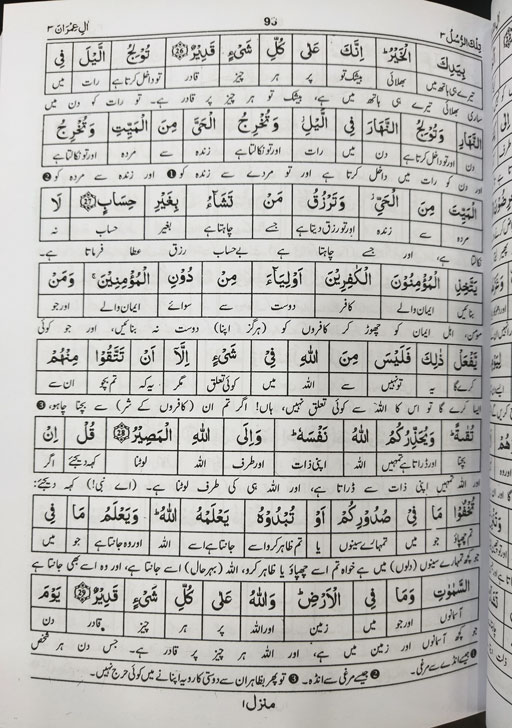 تِلْكَ الرُّسُلُ ٣ 95 اٰلِ عِمْرَان ٣
بِيَدِكَ الْخَيْرُ ؕ اِنَّكَ عَلٰى كُلِّ شَيْءٍ قَدِيْرٌ ﴿26﴾ تُوْلِجُ الَّيْلَ فِي
تیرے ہی ہاتھ میں بھلائی بیشک تو پر ہر چیز قادر تو داخل کرتا ہے رات میں
ساری بھلائی تیرے ہی ہاتھ میں ہے، بیشک تو ہر چیز پر قادر ہے۔ تو رات کو دن میں
النَّهَارِ وَتُوْلِجُ النَّهَارَ فِي الَّيْلِ ؗ وَتُخْرِجُ الْحَيَّ مِنَ الْمَيِّتِ وَتُخْرِجُ
دن اور تو داخل کرتا ہے دن میں رات اور تو نکالتا ہے زندہ سے مردہ اور تو نکالتا ہے
اور دن کو رات میں داخل کرتا ہے اور تو مردے سے زندہ کو ❶ اور زندہ سے مردہ کو ❷
الْمَيِّتَ مِنَ الْحَيِّ ؗ وَتَرْزُقُ مَنْ تَشَآءُ بِغَيْرِ حِسَابٍ ﴿27﴾ لَا
مردہ سے زندہ اور تو رزق دیتا ہے جسے چاہتا ہے بغیر حساب نہ
نکالتا ہے، اور جسے چاہتا ہے بے حساب رزق عطا فرماتا ہے۔
يَتَّخِذِ الْمُؤْمِنُوْنَ الْكٰفِرِيْنَ اَوْلِيَآءَ مِنْ دُوْنِ الْمُؤْمِنِيْنَ ۚ وَمَنْ
بنائیں ایمان والے کافر دوست سے سوائے ایمان والے اور جو
مومن، اہل ایمان کو چھوڑ کر کافروں کو (ہرگز اپنا) دوست نہ بنائیں، اور جو کوئی
يَّفْعَلْ ذٰلِكَ فَلَيْسَ مِنَ اللّٰهِ فِيْ شَيْءٍ اِلَّاۤ اَنْ تَتَّقُوْا مِنْهُمْ
کرے گا یہ تو نہیں سے اللہ میں کوئی تعلق مگر یہ کہ تم بچو ان سے
ایسا کرے گا تو اس کا اللہ سے کوئی تعلق نہیں، ہاں! اگر تم ان (کافروں کے شر) سے بچنا چاہو، ❸
تُقٰىةً ؕ وَيُحَذِّرُكُمُ اللّٰهُ نَفْسَهٗ ؕ وَاِلَى اللّٰهِ الْمَصِيْرُ ﴿28﴾ قُلْ اِنْ
بچنا اور ڈراتا ہے تمہیں اللہ اپنی ذات اور طرف اللہ لوٹنا کہہ دیجئے اگر
اور اللہ تمہیں اپنی ذات سے ڈراتا ہے، اور اللہ ہی کی طرف لوٹنا ہے۔ (اے نبی!) کہہ دیجئے:
تُخْفُوْا مَا فِيْ صُدُوْرِكُمْ اَوْ تُبْدُوْهُ يَعْلَمْهُ اللّٰهُ ؕ وَيَعْلَمُ مَا فِي
تم چھپاؤ جو میں تمہارے سینوں یا تم ظاہر کرو اسے جانتا ہے اسے اللہ اور وہ جانتا ہے جو میں
جو کچھ تمہارے سینوں (دلوں) میں ہے خواہ تم اسے چھپاؤ یا ظاہر کرو، اللہ (بہرحال) اسے جانتا ہے، اور وہ اسے بھی جانتا ہے
السَّمٰوٰتِ وَمَا فِي الْاَرْضِ ؕ وَاللّٰهُ عَلٰى كُلِّ شَيْءٍ قَدِيْرٌ ﴿29﴾ يَوْمَ
آسمانوں اور جو میں زمین اور اللہ پر ہر چیز قادر دن
جو کچھ آسمانوں اور زمین میں ہے، اور اللہ ہر چیز پر قادر ہے۔ جس دن ہر شخص
❶ جیسے انڈے سے مرغی۔ ❷ جیسے مرغی سے انڈہ۔ ❸ تو پھر بظاہر ان سے دوستی کا رویہ اپنانے میں کوئی حرج نہیں۔
منزل ١